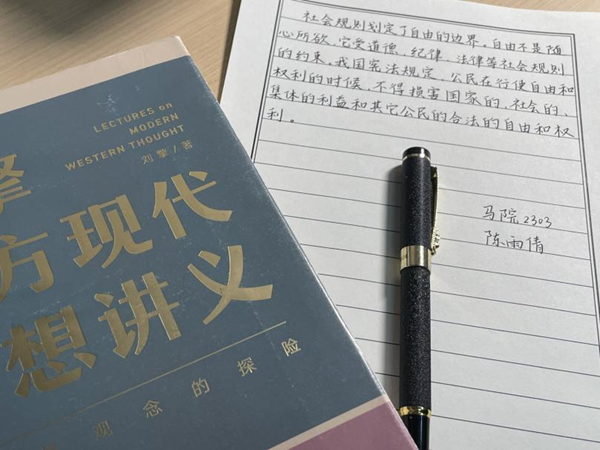 社会规则划定了自由的边界。自由不是随
心所欲，它受道德、纪律、法律等社会规则
的约束。我国宪法规定，公民在行使自由和
权利的时候，不得损害国家的、社会的、
集体的利益和其它公民的合法的自由和权
利。
马院2303
陈雨倩
LECTURES on
MODERN
WESTERN THOUGHT
刘擎/著
擎
方现代
想讲义
观念的探险